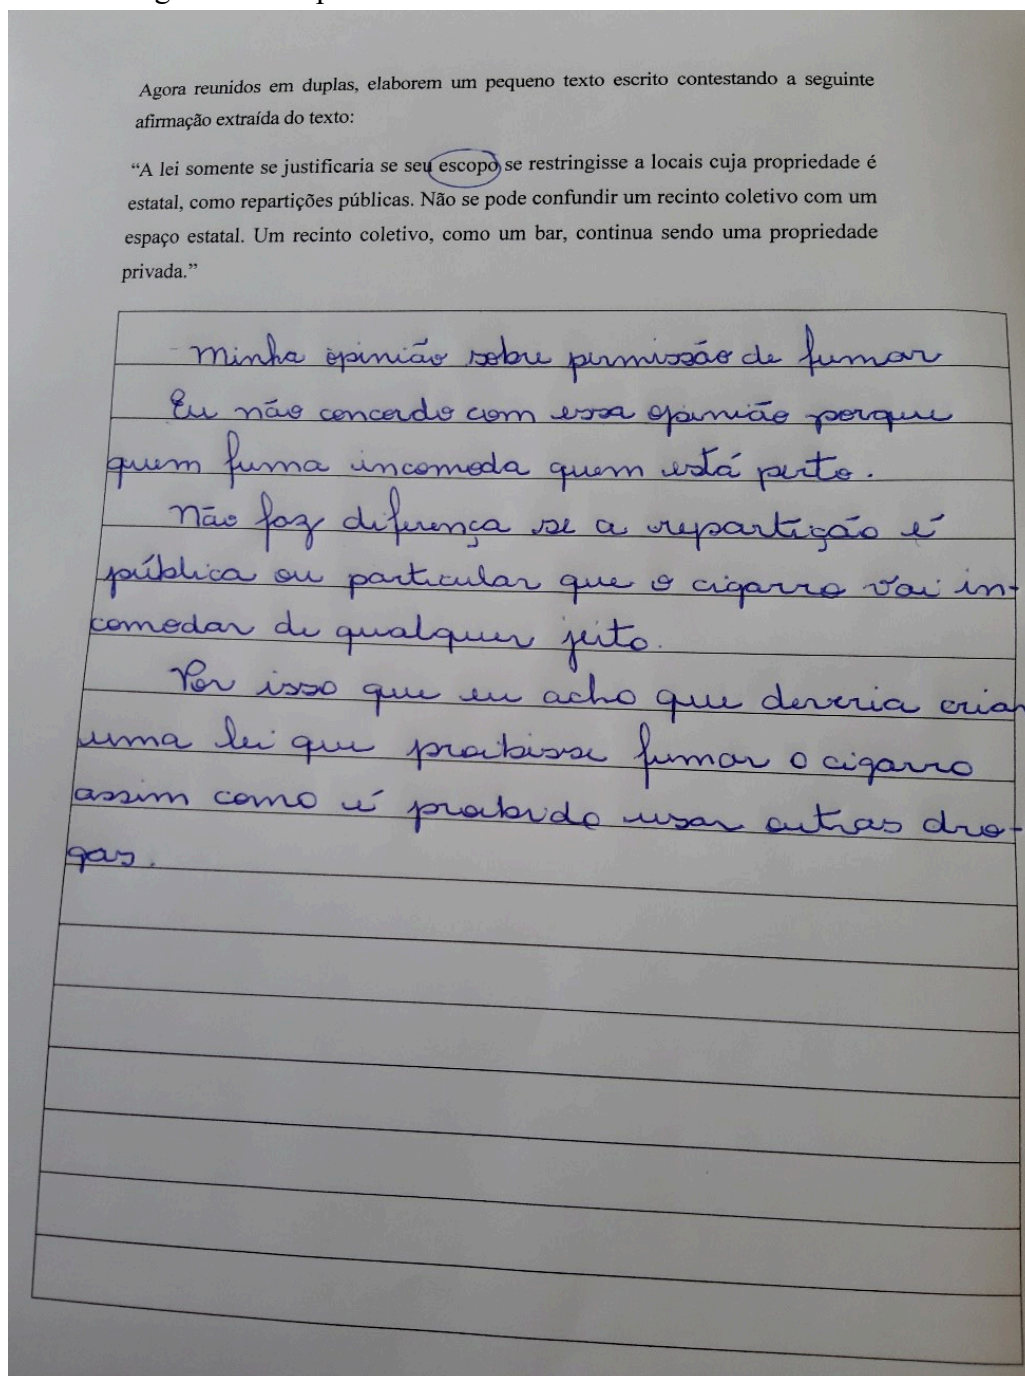 Agora reunidos em duplas, elaborem um pequeno texto escrito contestando a seguinte
afirmação extraída do texto:
“A lei somente se justificaria se seu escopo se restringisse a locais cuja propriedade é
estatal, como repartições públicas. Não se pode confundir um recinto coletivo com um
espaço estatal. Um recinto coletivo, como um bar, continua sendo uma propriedade
privada.”
Minha opinião sobre permissão de fumar
Eu não concordo com essa opinião porque
quem fuma incomoda quem está perto.
Não faz diferença se a repartição é
pública ou particular que o cigarro vai in-
comodar de qualquer jeito.
Por isso que eu acho que deveria criar
uma lei que proibisse fumar o cigarro
assim como é proibido usar outras dro-
gas.